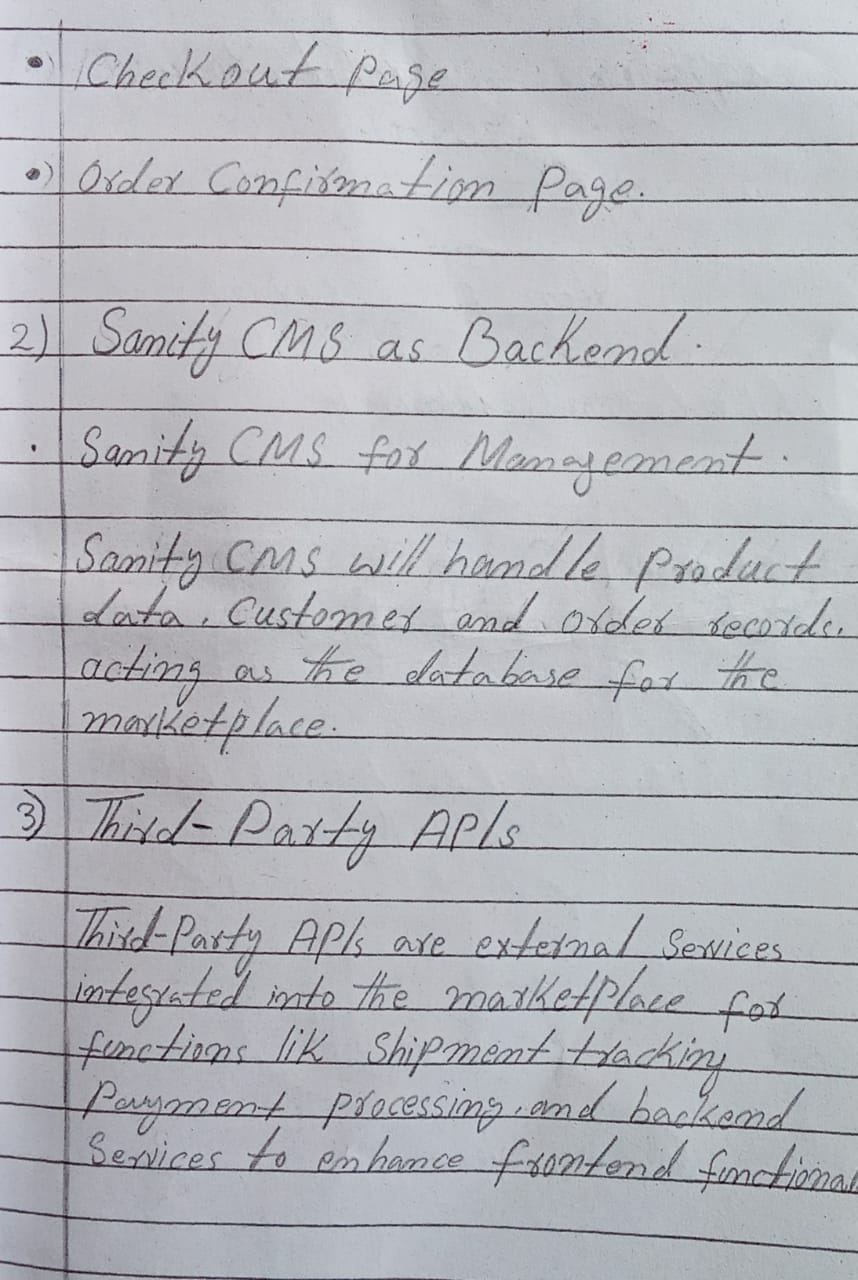 •) Checkout Page
•) Order Confirmation Page.
2) Sanity CMS as Backend.
. Sanity CMS for Management.
Sanity CMS will handle Product
data, Customer and order records.
acting as the database for the
marketplace.
3) Third-Party APIs
Third-Party APIs are external Services
integrated into the marketplace for
functions lik Shipment tracking
Payment processing, and backend
Services to enhance frontend functional